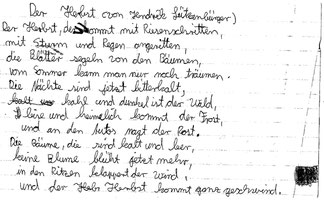 Der Herbst (von Hendrik Lützenbürger)
Der Herbst, der kommt mit Riesenschritten,
mit Sturm und Regen angeritten,
die Blätter segeln von den Bäumen,
vom Sommer kann man nur noch träumen.
Die Nächte sind jetzt bitterkalt,
kahl und dunkel ist der Wald,
Leise und heimlich kommt der Frost,
und an den Autos nagt der Rost.
Die Bäume, die sind kalt und leer,
keine Blume blüht jetzt mehr,
in den Ritzen klappert der Wind,
und der Herbst kommt ganz geschwind.